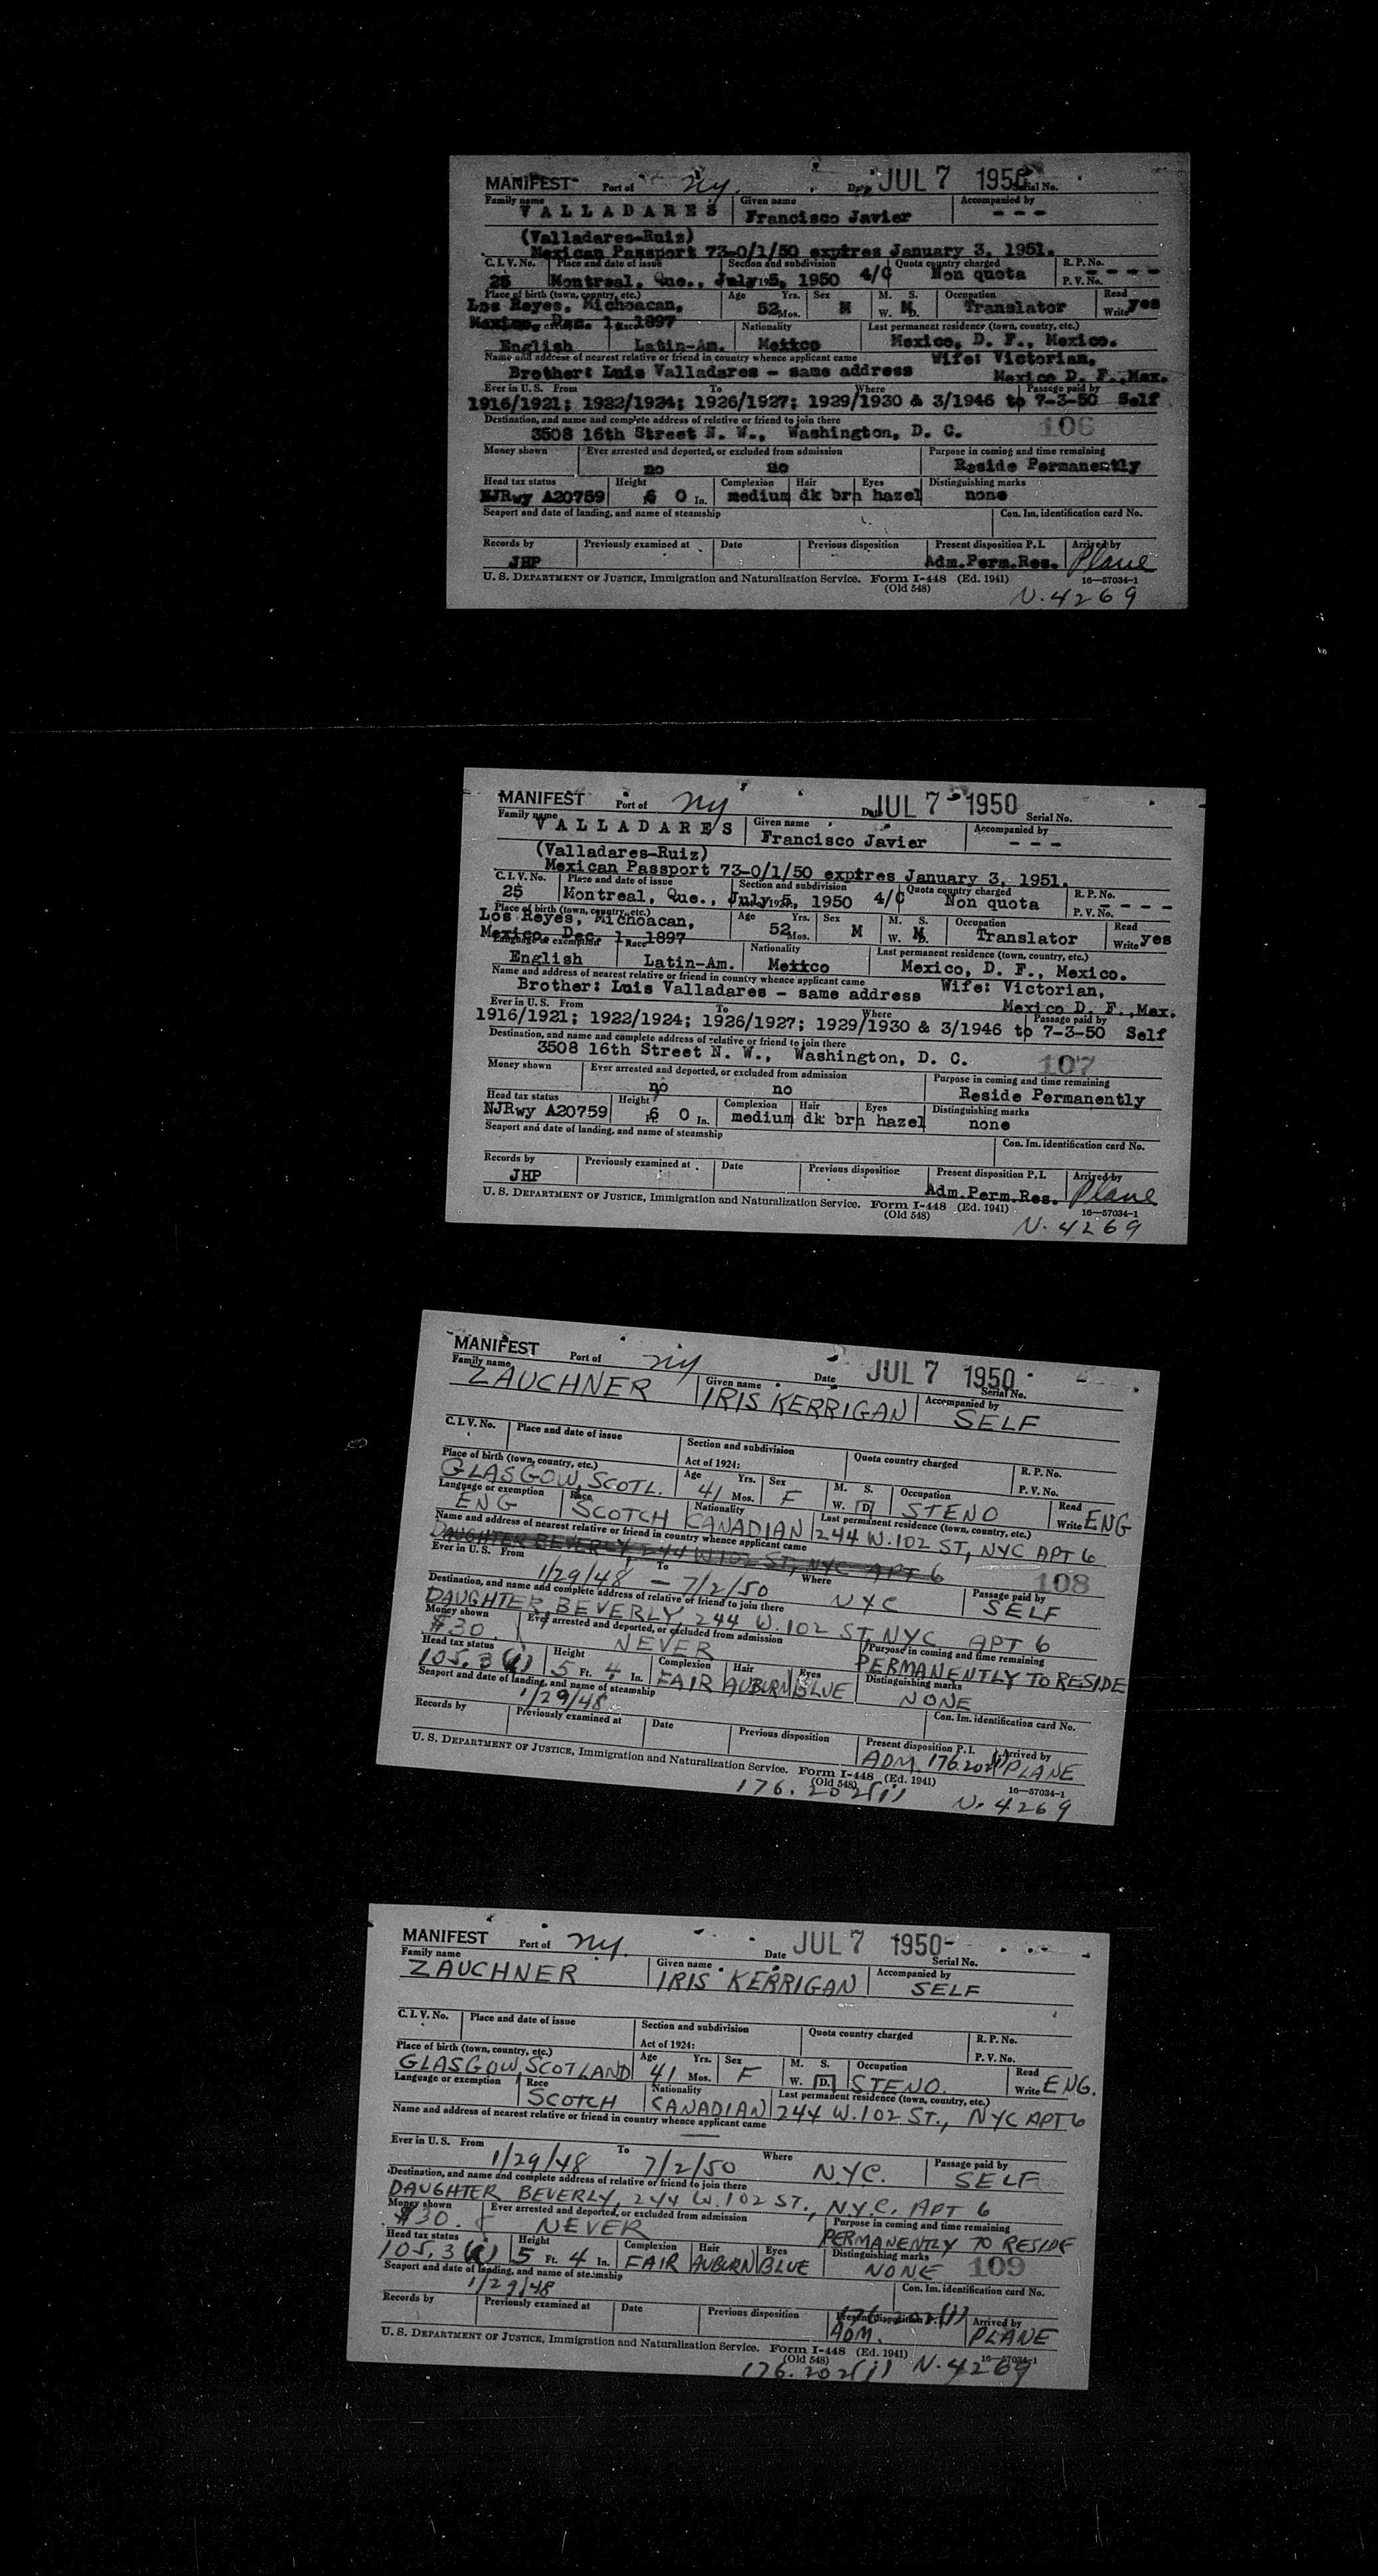 MANIFEST Port of NY. Date JUL 7 1950 Serial No.
Family name VALLADARES Given name Francisco Javier Accompanied by - - -
(Valladares-Ruiz)
Mexican Passport 73-0/1/50 expires January 3, 1951.
C. I. V. No. Place and date of issue Section and subdivision Quota country charged R. P. No.
25 Montreal, Que., July 5, 1950 4/C Non quota P. V. No. - - - -
Place of birth (town, country, etc.) Age Yrs. Sex M. S. Occupation Read
Los Reyes, Michoacan, 52 Mos. M W. D. M Translator Write yes
Mexico, Dec. 1, 1897 Race Nationality Last permanent residence (town, country, etc.)
English Latin-Am. Mexico Mexico, D. F., Mexico.
Name and address of nearest relative or friend in country whence applicant came Wife: Victorian,
Brother: Luis Valladares - same address Mexico D. F., Mex.
Ever in U. S. From To Where Passage paid by
1916/1921; 1922/1924; 1926/1927; 1929/1930 & 3/1946 to 7-3-50 Self
Destination, and name and complete address of relative or friend to join there 106
3508 16th Street N. W., Washington, D. C.
Money shown Ever arrested and deported, or excluded from admission Purpose in coming and time remaining
no no Reside Permanently
Head tax status Height Complexion Hair Eyes Distinguishing marks
NJRwy A20759 6 0 In. medium dk brn hazel none
Seaport and date of landing, and name of steamship Con. Im. identification card No.
Records by Previously examined at Date Previous disposition Present disposition P. I. Arrived by
JHP Adm.Perm.Res. Plane
U. S. DEPARTMENT OF JUSTICE, Immigration and Naturalization Service. Form I-448 (Ed. 1941) 16—57034-1
(Old 548) N. 4269
MANIFEST Port of NY Date JUL 7 1950 Serial No.
Family name VALLADARES Given name Francisco Javier Accompanied by - - -
(Valladares-Ruiz)
Mexican Passport 73-0/1/50 expires January 3, 1951.
C. I. V. No. Place and date of issue Section and subdivision Quota country charged R. P. No.
25 Montreal, Que., July 5, 1950 4/C Non quota P. V. No. - - - -
Place of birth (town, country, etc.) Age Yrs. Sex M. S. Occupation Read
Los Reyes, Michoacan, 52 Mos. M W. D. M Translator Write yes
Mexico, Dec. 1, 1897 Language or exemption Race Nationality Last permanent residence (town, country, etc.)
English Latin-Am. Mexico Mexico, D. F., Mexico.
Name and address of nearest relative or friend in country whence applicant came Wife: Victorian,
Brother: Luis Valladares - same address Mexico D. F., Mex.
Ever in U. S. From To Where Passage paid by
1916/1921; 1922/1924; 1926/1927; 1929/1930 & 3/1946 to 7-3-50 Self
Destination, and name and complete address of relative or friend to join there
3508 16th Street N. W., Washington, D. C. 107
Money shown Ever arrested and deported, or excluded from admission Purpose in coming and time remaining
no no Reside Permanently
Head tax status Height Complexion Hair Eyes Distinguishing marks
NJRwy A20759 Ft. 6 0 In. medium dk brn hazel none
Seaport and date of landing, and name of steamship Con. Im. identification card No.
Records by Previously examined at Date Previous disposition Present disposition P. I. Arrived by
JHP Adm.Perm.Res. Plane
U. S. DEPARTMENT OF JUSTICE, Immigration and Naturalization Service. Form I-448 (Ed. 1941) 16—57034-1
(Old 548) N. 4269
MANIFEST Port of NY Date JUL 7 1950 Serial No.
Family name ZAUCHNER Given name IRIS KERRIGAN Accompanied by SELF
C. I. V. No. Place and date of issue Section and subdivision Quota country charged R. P. No.
Act of 1924: P. V. No.
Place of birth (town, country, etc.) Age Yrs. Sex M. S. Occupation Read
GLASGOW, SCOTL. 41 Mos. F W. D. STENO Write ENG
Language or exemption Race Nationality Last permanent residence (town, country, etc.)
ENG SCOTCH CANADIAN 244 W. 102 ST, NYC APT 6
Name and address of nearest relative or friend in country whence applicant came
DAUGHTER BEVERLY, 244 W 102 ST, NYC APT 6
Ever in U. S. From To Where 108 Passage paid by
1/29/48 — 7/2/50 NYC SELF
Destination, and name and complete address of relative or friend to join there
DAUGHTER, BEVERLY, 244 W. 102 ST, NYC APT 6
Money shown Ever arrested and deported, or excluded from admission Purpose in coming and time remaining
$30. NEVER PERMANENTLY TO RESIDE
Head tax status Height Complexion Hair Eyes Distinguishing marks
105.3 5 Ft. 4 In. FAIR AUBURN BLUE NONE
Seaport and date of landing, and name of steamship Con. Im. identification card No.
1/29/48
Records by Previously examined at Date Previous disposition Present disposition P. I. Arrived by
ADM. 176.202(1) PLANE
U. S. DEPARTMENT OF JUSTICE, Immigration and Naturalization Service. Form I-448 (Ed. 1941) 16—57034-1
(Old 548) 176.202(1) N. 4269
MANIFEST Port of NY. Date JUL 7 1950 Serial No.
Family name ZAUCHNER Given name IRIS KERRIGAN Accompanied by SELF
C. I. V. No. Place and date of issue Section and subdivision Quota country charged R. P. No.
Act of 1924: P. V. No.
Place of birth (town, country, etc.) Age Yrs. Sex M. S. Occupation Read
GLASGOW, SCOTLAND 41 Mos. F W. D. STENO. Write ENG.
Language or exemption Race Nationality Last permanent residence (town, country, etc.)
SCOTCH CANADIAN 244 W. 102 ST., NYC APT 6
Name and address of nearest relative or friend in country whence applicant came
Ever in U. S. From To Where Passage paid by
1/29/48 7/2/50 N.Y.C. SELF
Destination, and name and complete address of relative or friend to join there
DAUGHTER BEVERLY, 244 W. 102 ST., N.Y.C. APT 6
Money shown Ever arrested and deported, or excluded from admission Purpose in coming and time remaining
$30. NEVER PERMANENTLY TO RESIDE
Head tax status Height Complexion Hair Eyes Distinguishing marks
105.3 5 Ft. 4 In. FAIR AUBURN BLUE NONE 109
Seaport and date of landing, and name of steamship Con. Im. identification card No.
1/29/48
Records by Previously examined at Date Previous disposition Present disposition P. I. Arrived by
176.202(1) ADM. PLANE
U. S. DEPARTMENT OF JUSTICE, Immigration and Naturalization Service. Form I-448 (Ed. 1941) 16—57034-1
(Old 548) 176.202(1) N. 4269